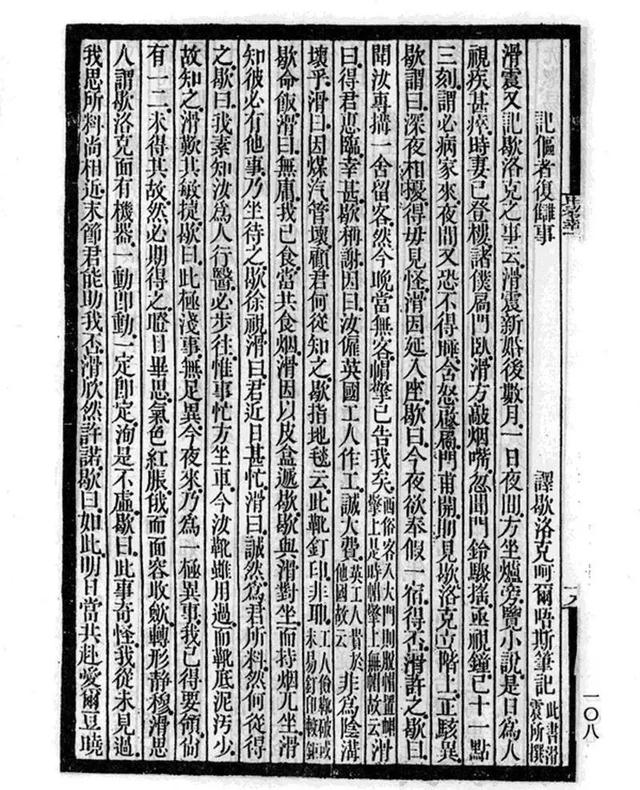 記傴者復讎事 譯歇洛克呵爾唔斯筆記 此書滑震所撰
滑震又記歇洛克之事云滑震新婚後數月一日夜間方坐爐旁覽小說是日為人
視疾甚瘁時妻已登樓諸僕扃門臥滑方敲烟嘴忽聞門鈴驟搖亟視鐘已十一點
三刻謂必病家來夜間又恐不得睡含怒啟扃門甫開則見歇洛克立階上正駭異
歇謂曰深夜相擾得毋見怪滑因延入座歇曰今夜欲奉假一宿得否滑許之歇曰
聞汝專搆一舍留客然今晚當無客帽擎已告我矣西俗客入大門則脫帽置帽擎上是時帽擎上無帽故云滑
曰得君惠臨幸甚歇稱謝因曰汝僱英國工人作工誠大費英工人費於他國故云非為陰溝
壞乎滑曰因煤汽管壞顧君何從知之歇指地毯云此靴釘印非耶工人儉靴破或未易釘印較鉅
歇命飯滑曰無庸我已食當共食烟滑因以皮盒遞歇歇與滑對坐而持烟几坐滑
知彼必有他事乃坐待之歇徐視滑曰君近日甚忙滑曰誠然為君所料然何從得
之歇曰我素知汝為人行醫必步往惟事忙方坐車今汝靴雖用過而靴底泥污少
故知之滑歎其敏捷歇曰此極淺事無足異今夜來乃為一極異事我已得要領尚
有一二未得其故然必期得之瞪目畢思氣色紅脹俄而面容收斂轉形靜穆滑思
人謂歇洛克面有機器一動即動一定即定洵是不虛歇曰此事奇怪我從未見過
我思所料尚相近末節君能助我否滑欣然許諾歇曰如此明日當共赴愛爾豆曉
一〇八